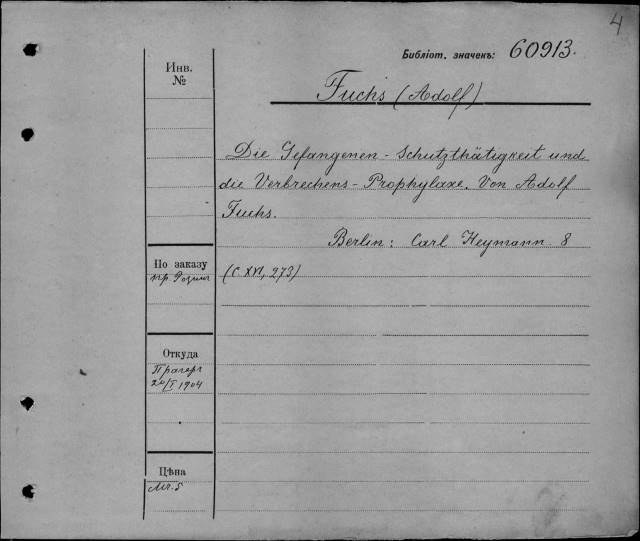 4
Библіот. значекъ: 60913.
Инв.
№
Fuchs (Adolf)
Die Gefangenen-Schutzthätigkeit und
die Verbrechens-Prophylaxe. Von Adolf
Fuchs.
Berlin: Carl Heymann. 8
По заказу
пр. Розин
(C. XVI, 273)
Откуда
Прагерг
20/I 1904
Цѣна
Мг. 5